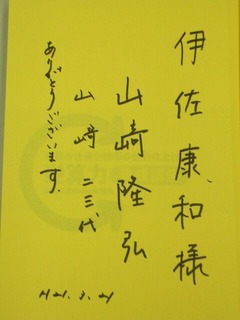 伊佐康和様
山崎隆弘
山崎二三代
ありがとうございます。
H21.3.21